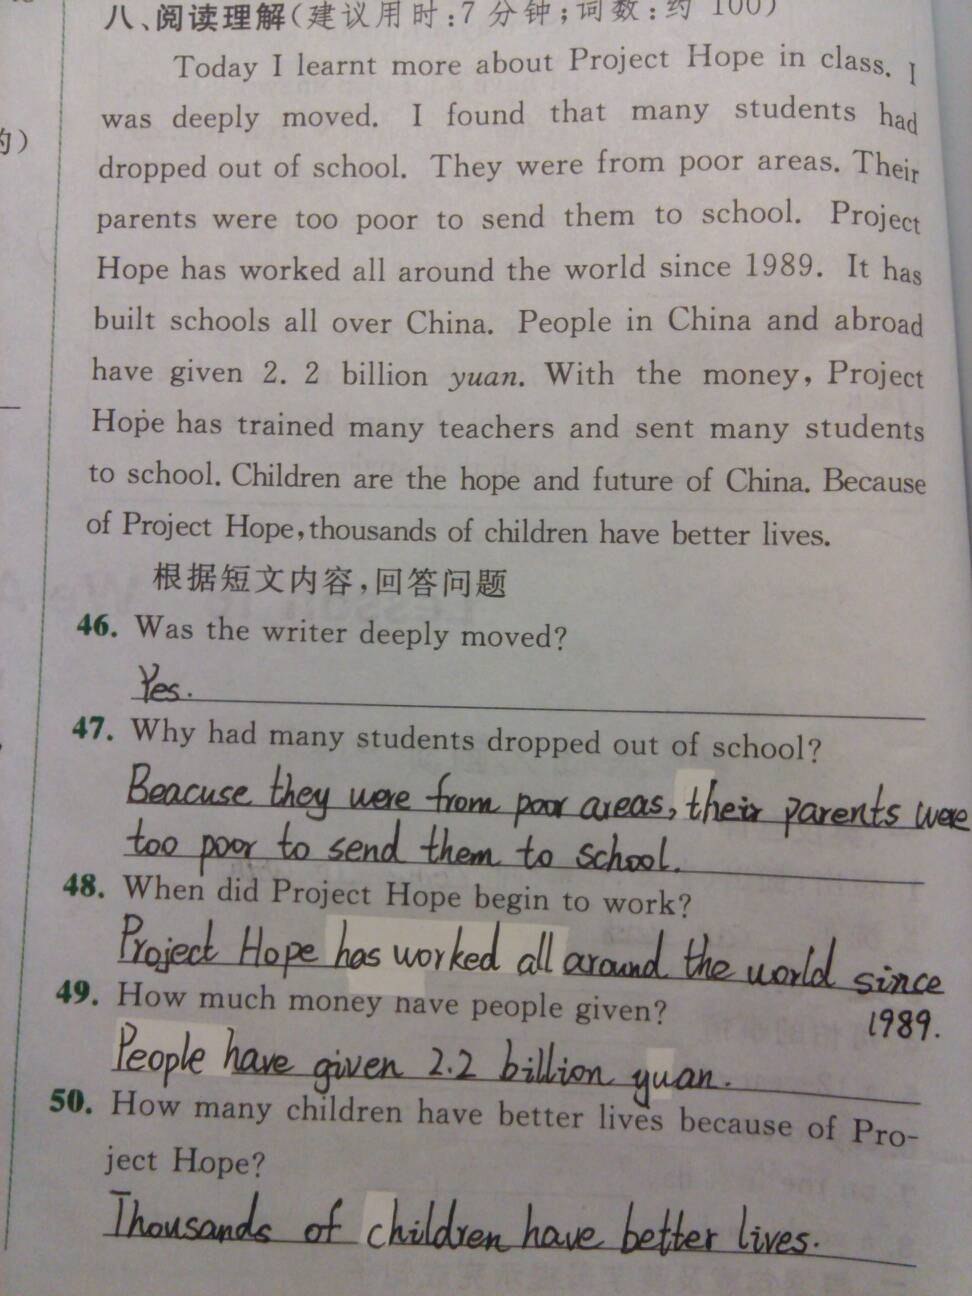 八、阅读理解(建议用时:7分钟;词数:约 100)
Today I learnt more about Project Hope in class. I
was deeply moved. I found that many students had
的)
dropped out of school. They were from poor areas. Their
parents were too poor to send them to school. Project
Hope has worked all around the world since 1989. It has
built schools all over China. People in China and abroad
have given 2. 2 billion yuan. With the money, Project
Hope has trained many teachers and sent many students
to school. Children are the hope and future of China. Because
of Project Hope, thousands of children have better lives.
根据短文内容,回答问题
46. Was the writer deeply moved?
Yes.
47. Why had many students dropped out of school?
Beacuse they were from poor areas, their parents were
too poor to send them to school.
48. When did Project Hope begin to work?
Project Hope has worked all around the world since
1989.
49. How much money have people given?
People have given 2.2 billion yuan.
50. How many children have better lives because of Pro-
ject Hope?
Thousands of children have better lives.